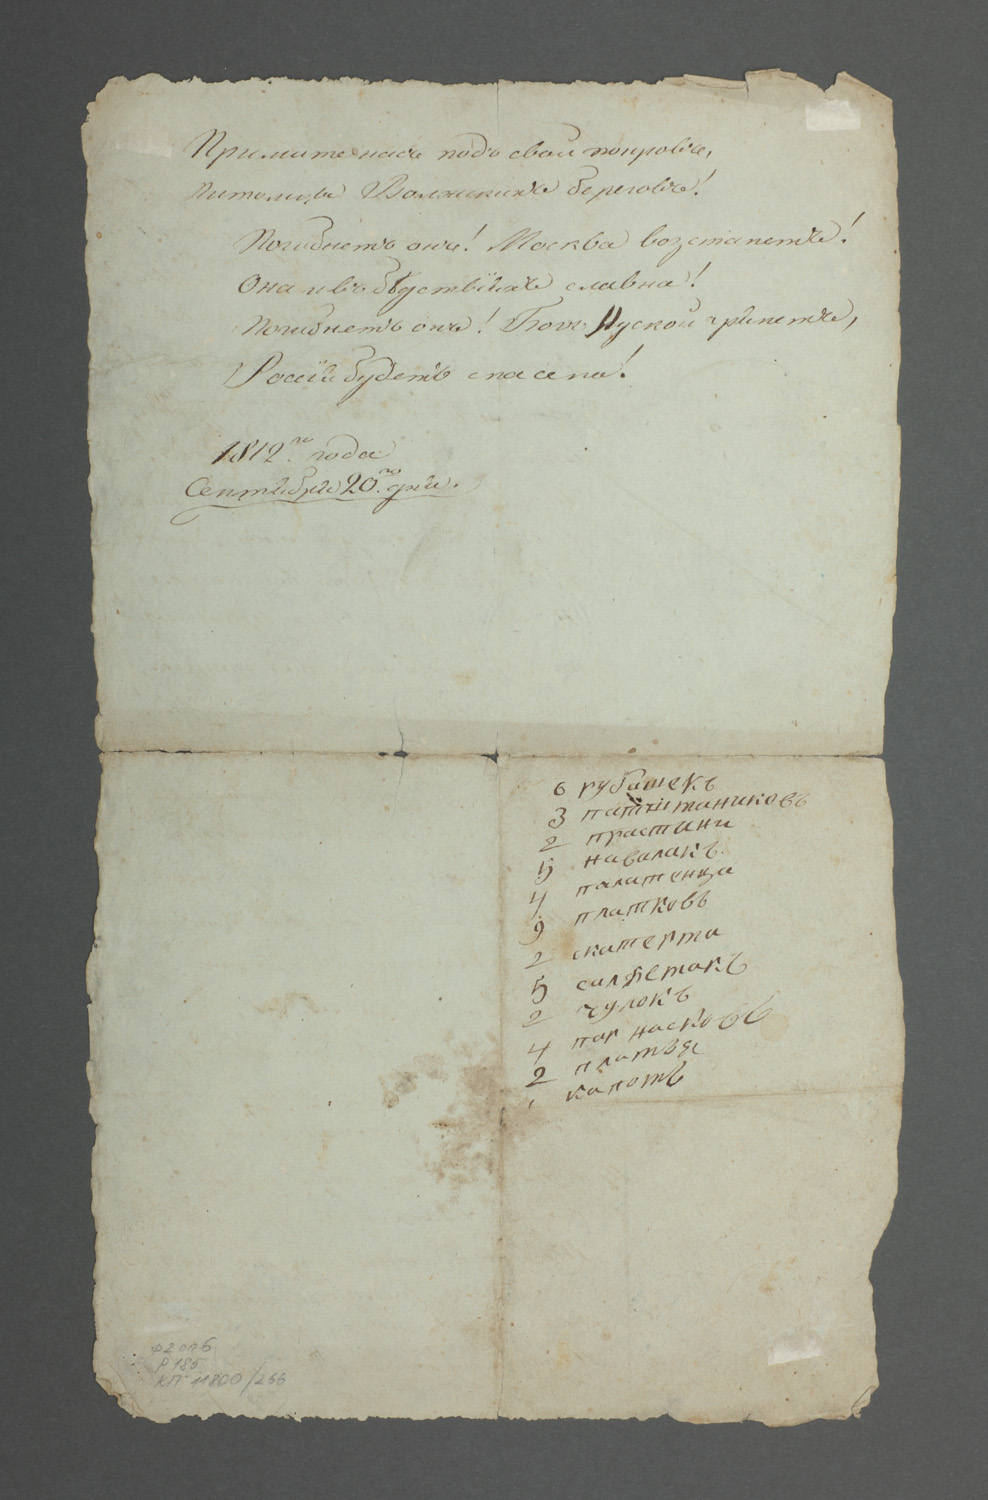 Примите насъ подъ свой покровъ,
Питомцы Волжскихъ береговъ!
Погибнетъ онъ! Москва возстанетъ!
Она и въ бѣдствіяхъ славна!
Погибнетъ онъ! Богъ Руской грянетъ,
Россія будетъ спасена!
1812го года
Сентября 20го дня.
6 рубашекъ
3 
2 прастыни
5 наволакъ
4 палатенца
9 платковъ
2 скатерти
5 салѳетакъ
2 чулокъ
4 пар насковъ
2 платья
1 капотъ
ф2 оп6
Р 185
КП 11800/266